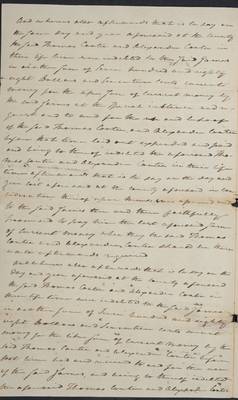 And whereas also afterwards that is to say on
the same day and year aforesaid at the county
the said Thomas Carter and Alexander Carter in
their life time were indebted to the said James
in another sum of seven hundred and eighty
eight Dollars and seventeen cents current
money for the like sum of current money by
the said James at the special instance and
and to and for the use and behoof
of the said Thomas Carter and Alexander Carter
before that time laid out expended and paid
and being to them so indebted the aforesaid Tho-
mas Carter and Alexander Carter in their life
time afterwards that is to say on the day and
year last aforesaid at the county aforesaid in con-
sideration thereof upon themselves
to the said James then and there faithfully
promised to pay him the last aforesaid sum
of current money when they the said Thomas
Carter and Alexander Carter should be there-
unto afterwards required
And whereas also afterwards that is to say on the
day and year aforesaid at the county aforesaid
the said Thomas Carter and Alexander Carter in
their life time were indebted to the said James
in another sum of seven hundred and eighty
eight Dollars and seventeen cents current
money for the like sum of current money by the
said Thomas Carter and Alexander Carter before
that time had and received to and for the use
of the said James and being so thereof indebted
the aforesaid Thomas Carter and Alexander Carter